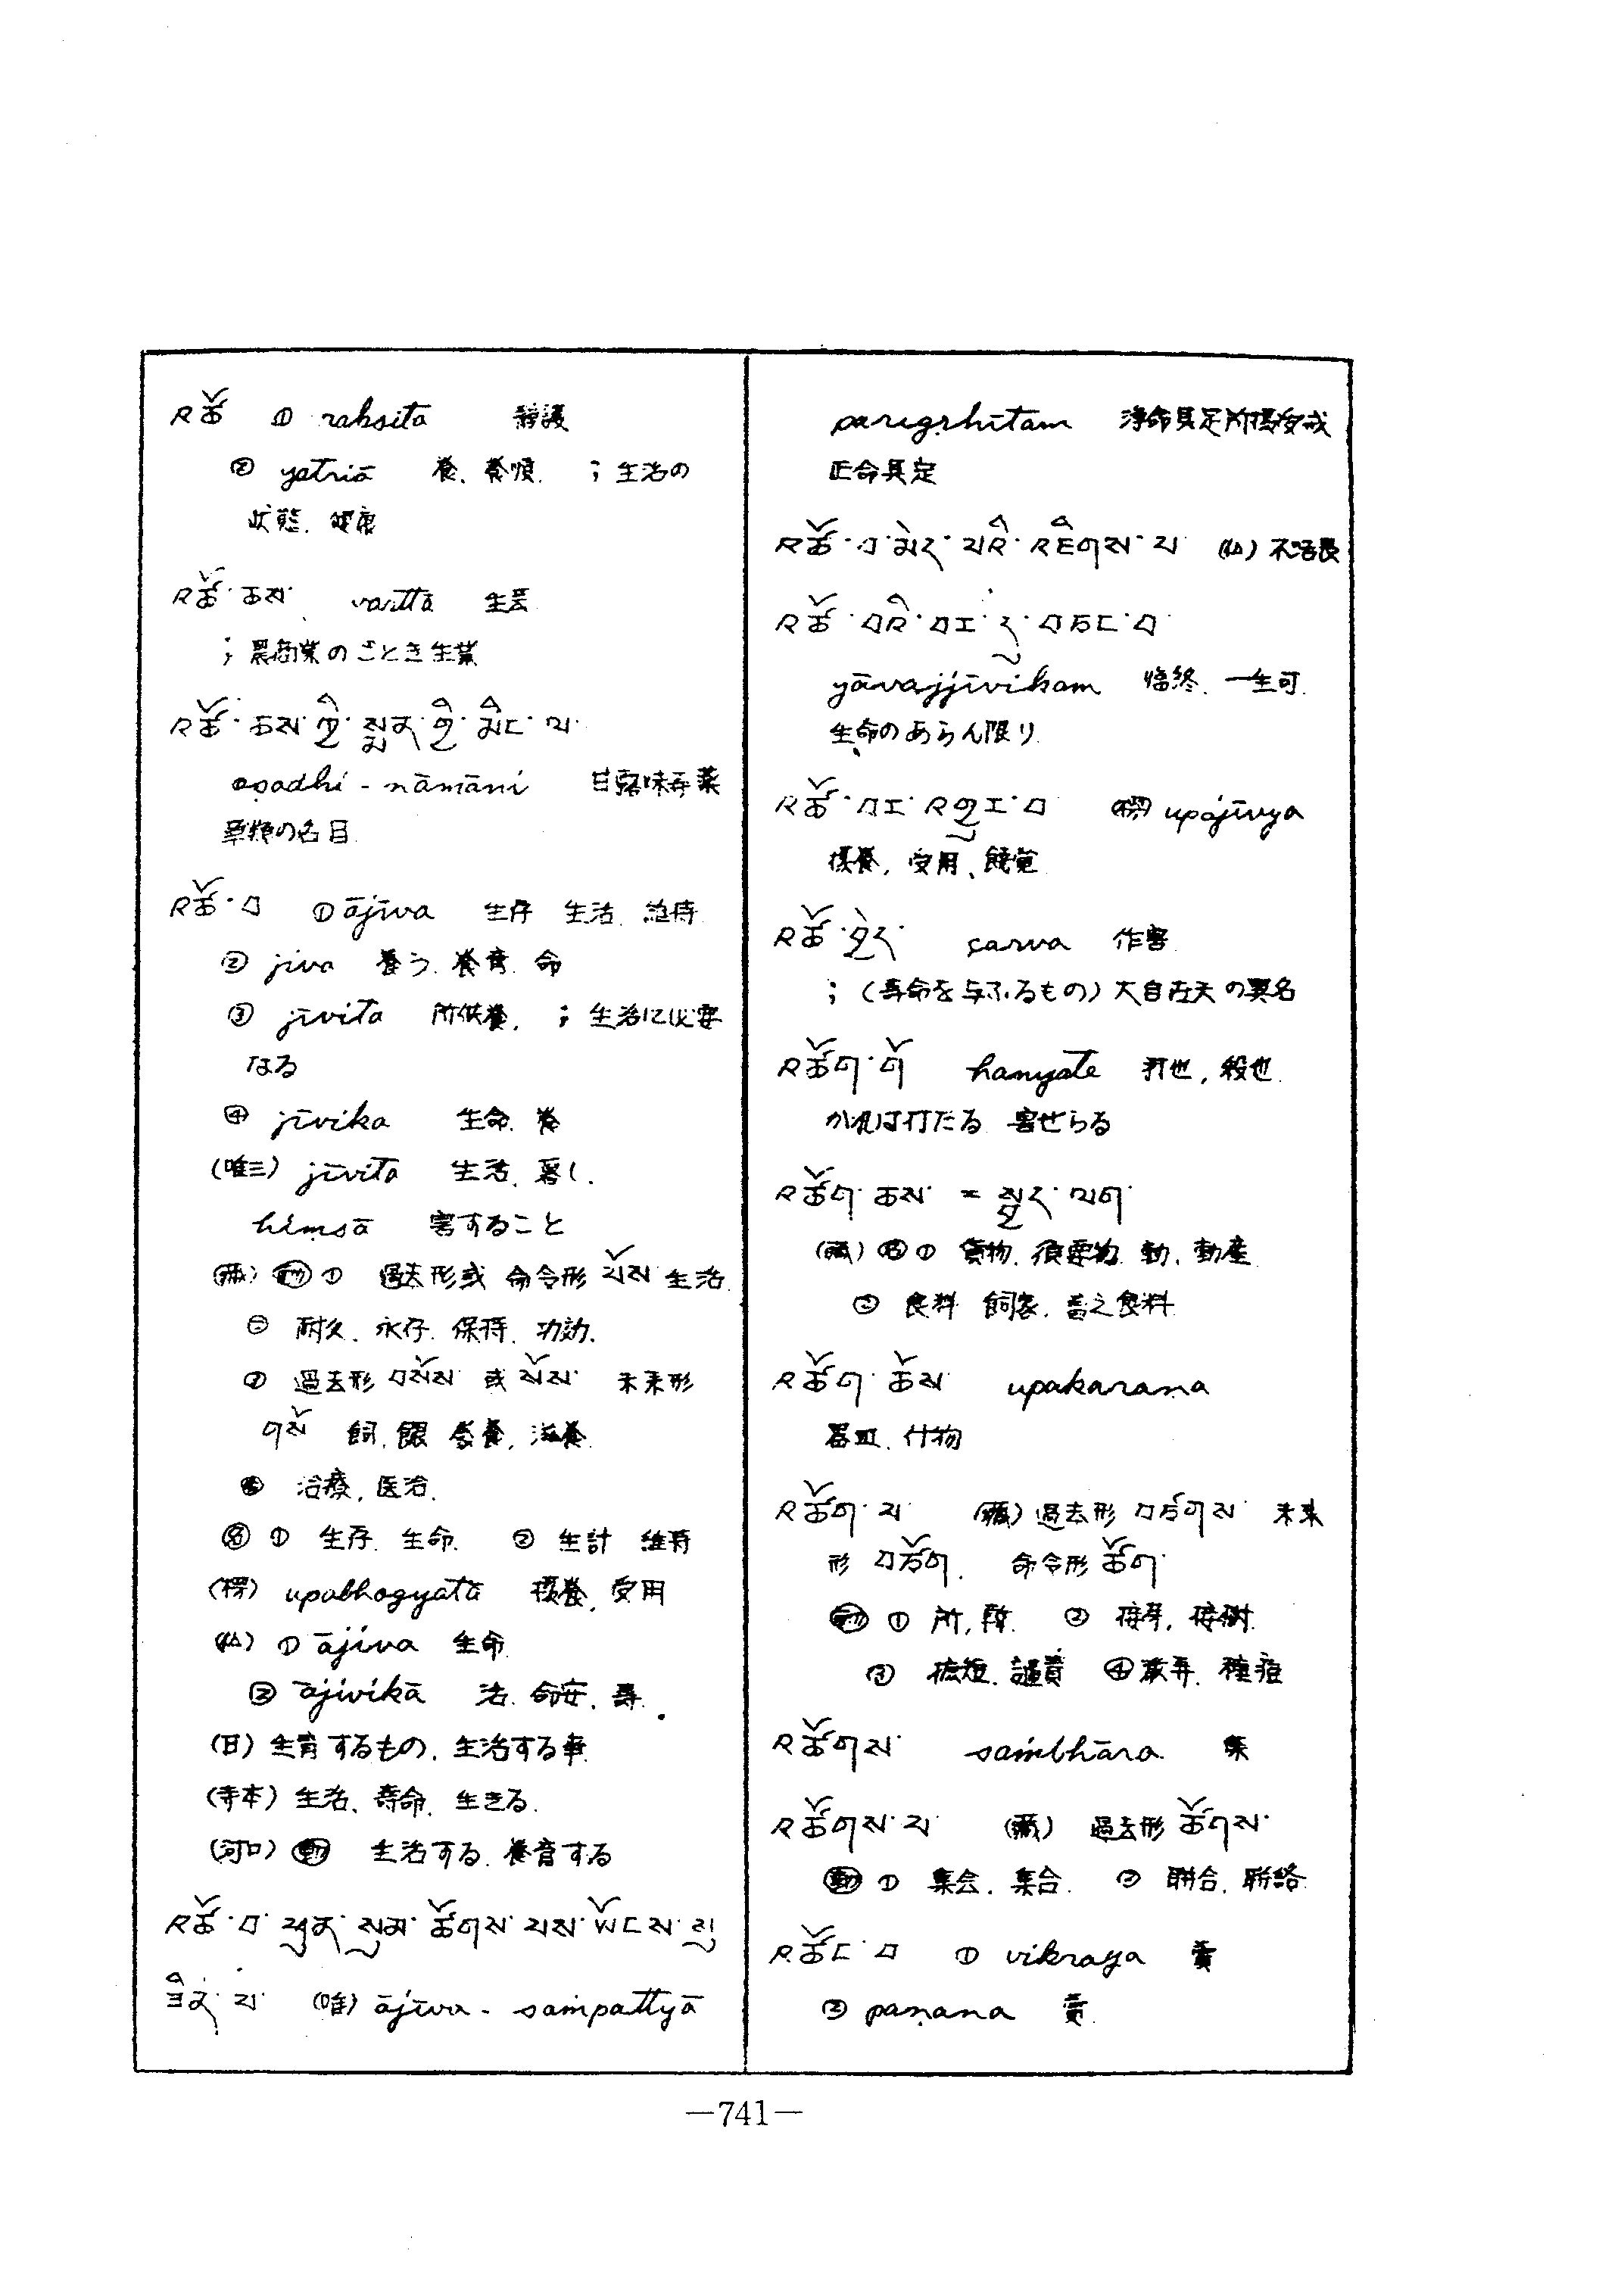 འཚོ ① rakṣita 靜護
② yatriā 養、養順. ; 生活の
状態. 健康
འཚོ་ཆས་ varttā 生芸
; 農商業のごとき生業
འཚོ་ཆས་ཀྱི་སྨན་གྱི་མིང་ལ་
oṣadhi-nāmāni 甘露味弄薬
草類の名目.
འཚོ་བ ① ājīva 生存 生活. 維持
② jiva 養う. 養育. 命
③ jīvita 所供養. ; 生活に必要
なる
④ jīvika 生命. 養
(唯三) jīvita 生活、暮し.
hiṃsā 害すること
(蔵) 動 ① 過去形或 命令形 འཚོས་ 生活.
㊁ 耐久. 永存. 保持. 功効.
② 過去形 བསོས་ 或 སོས་ 未来形
གསོ 飼. 餵 養. 滋養.
治療. 医治.
名 ① 生存. 生命. ② 生計 維持
(楞) upabhogyatā 摂養. 受用
(仏) ① ājīva 生命.
② ājivikā 活. 命安. 壽.
(日) 生育するもの. 生活する事.
(寺本) 生活、壽命. 生きる.
(河口) 動 生活する. 養育する
འཚོ་བ་ཕུན་སུམ་ཚོགས་པས་ཡོངས་སུ
ཟིན་པ་ (唯) ājīva-saṃpattyā
parigṛhītam 淨命具足所摂受戒
正命具足
འཚོ་བ་མེད་པའི་འཇིགས་པ (仏) 不活畏
འཚོ་བའི་བར་དུ་བཅང་བ་
yāvajjīvikam 臨終. 一生可.
生命のあらん限り.
འཚོ་བར་འགྱུར་བ (楞) upajīvya
摂養. 受用、饒覚
འཚོ་བྱེད་ śarva 作害
; (寿命を与ふるもの) 大自在天の異名
འཚོག་གོ hanyate 打也, 殺也.
かれは打たる 害せらる
འཚོག་ཆས་ = སྤྱད་ལག་
(蔵) 名 ① 貨物. 須要物. 動. 動産
② 食料 飼家. 畜之食料
འཚོག་ཆོས་ upakaraṇa
器皿. 什物
འཚོག་པ (蔵) 過去形 བཙོགས་ 未来
形 བཙོག. 命令形 ཚོག་
動 ① 所, 斫. ② 接芽, 接樹.
③ 譴責 ④ 種痘
འཚོགས་ saṃbhāra 集
འཚོགས་པ་ (蔵) 過去形 ཚོགས་
動 ① 集会. 集合. ② 聯合. 聯絡
འཚོང་བ ① vikraya 賣
② paṇana 賣.
—741—